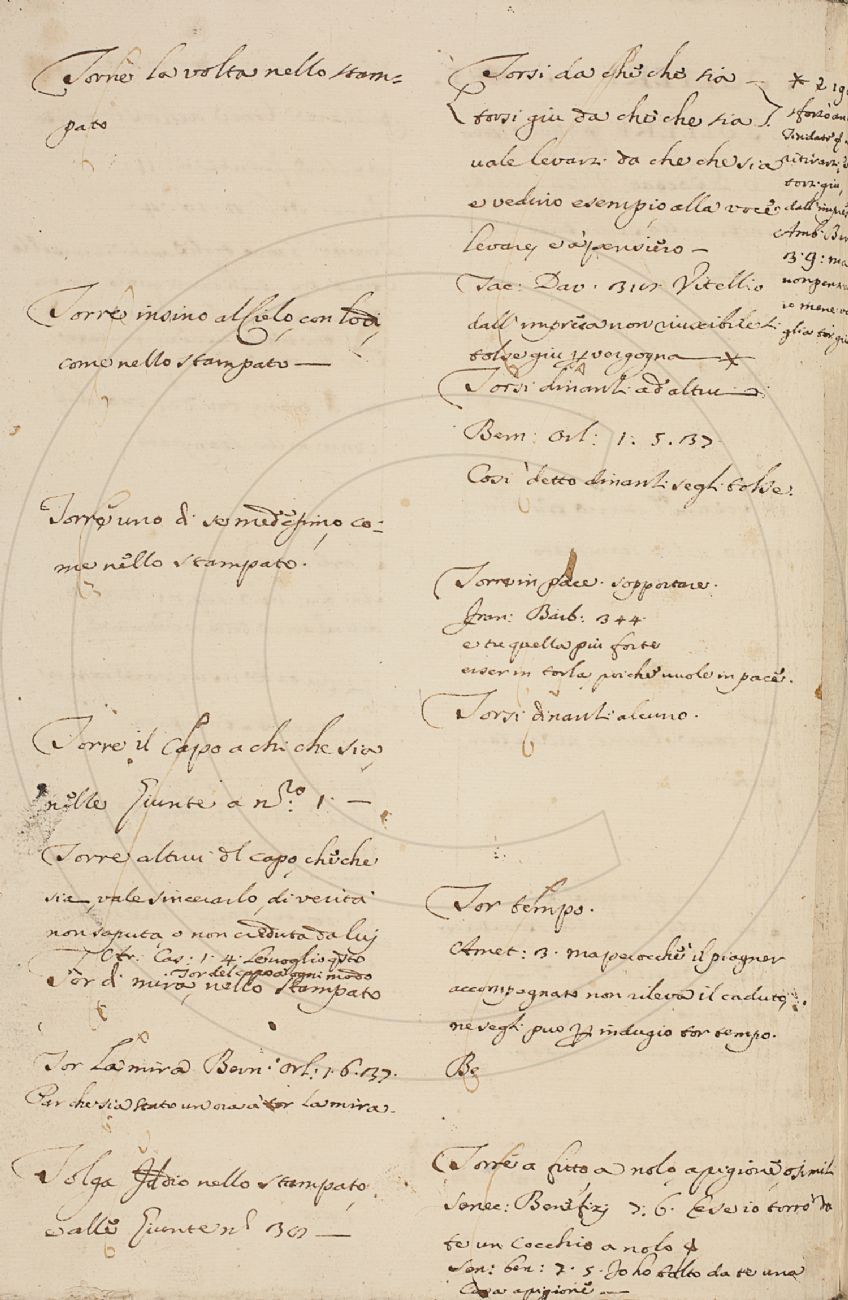 Torre la volta nello stam=
pato
Torre insino al Cielo, con lodi,
come nello stampato —
Torre uno di se medesimo, co=
me nello stampato.
Torre il Capo a chi che sia,
nelle Giunte a n.ro 1. —
Torre altrui dl capo, che che
sia, vale sincerarlo, di verità
non saputa, o non creduta da lui
Cas: 1. 4. Le voglio qsto
Tor del capo a ogni modo
Tor di mira, nello stampato
Tor la mira Bern: Orl: 1. 6. 37.
Par che sia stato un'ora à tor la mira.
Tolga Iddio nello stampato,
e alle Giunte n.
Torsi da che che sia —
torsi giu da che che sia.
vale levarsi da che che sia
e vedine esempio, alla voce
levare, e à pensiero —
Tac: Dav. Vitellio
dall'impresa non riuscibile si
tolse giu p vergogna — *
Torsi dinanti ad altrui —
Bern: Orl: 1. 5. 37
Cosi detto dinanti segli tolse.
Torre in pace. sopportare.
Fran: Barb: 344
e tu quella piu forte
in torla, poiche vuole in pace.
Torsi dinanti alcuno.
Tor tempo.
Amet: 3. ma perocchè il piagner
accompagnato non rileva il caduto,
ne segli puo p indugio tor tempo.
Be
Torre a fitto, a nolo, a pigione, o simili
Senec: Benif: 7. 6. E se io torrò da
te un Cocchio a nolo
Sen: ben: 7. 5. Io ho tolto da te una
Casa a pigione —
*
giu,
Amb.
3. 9: ma